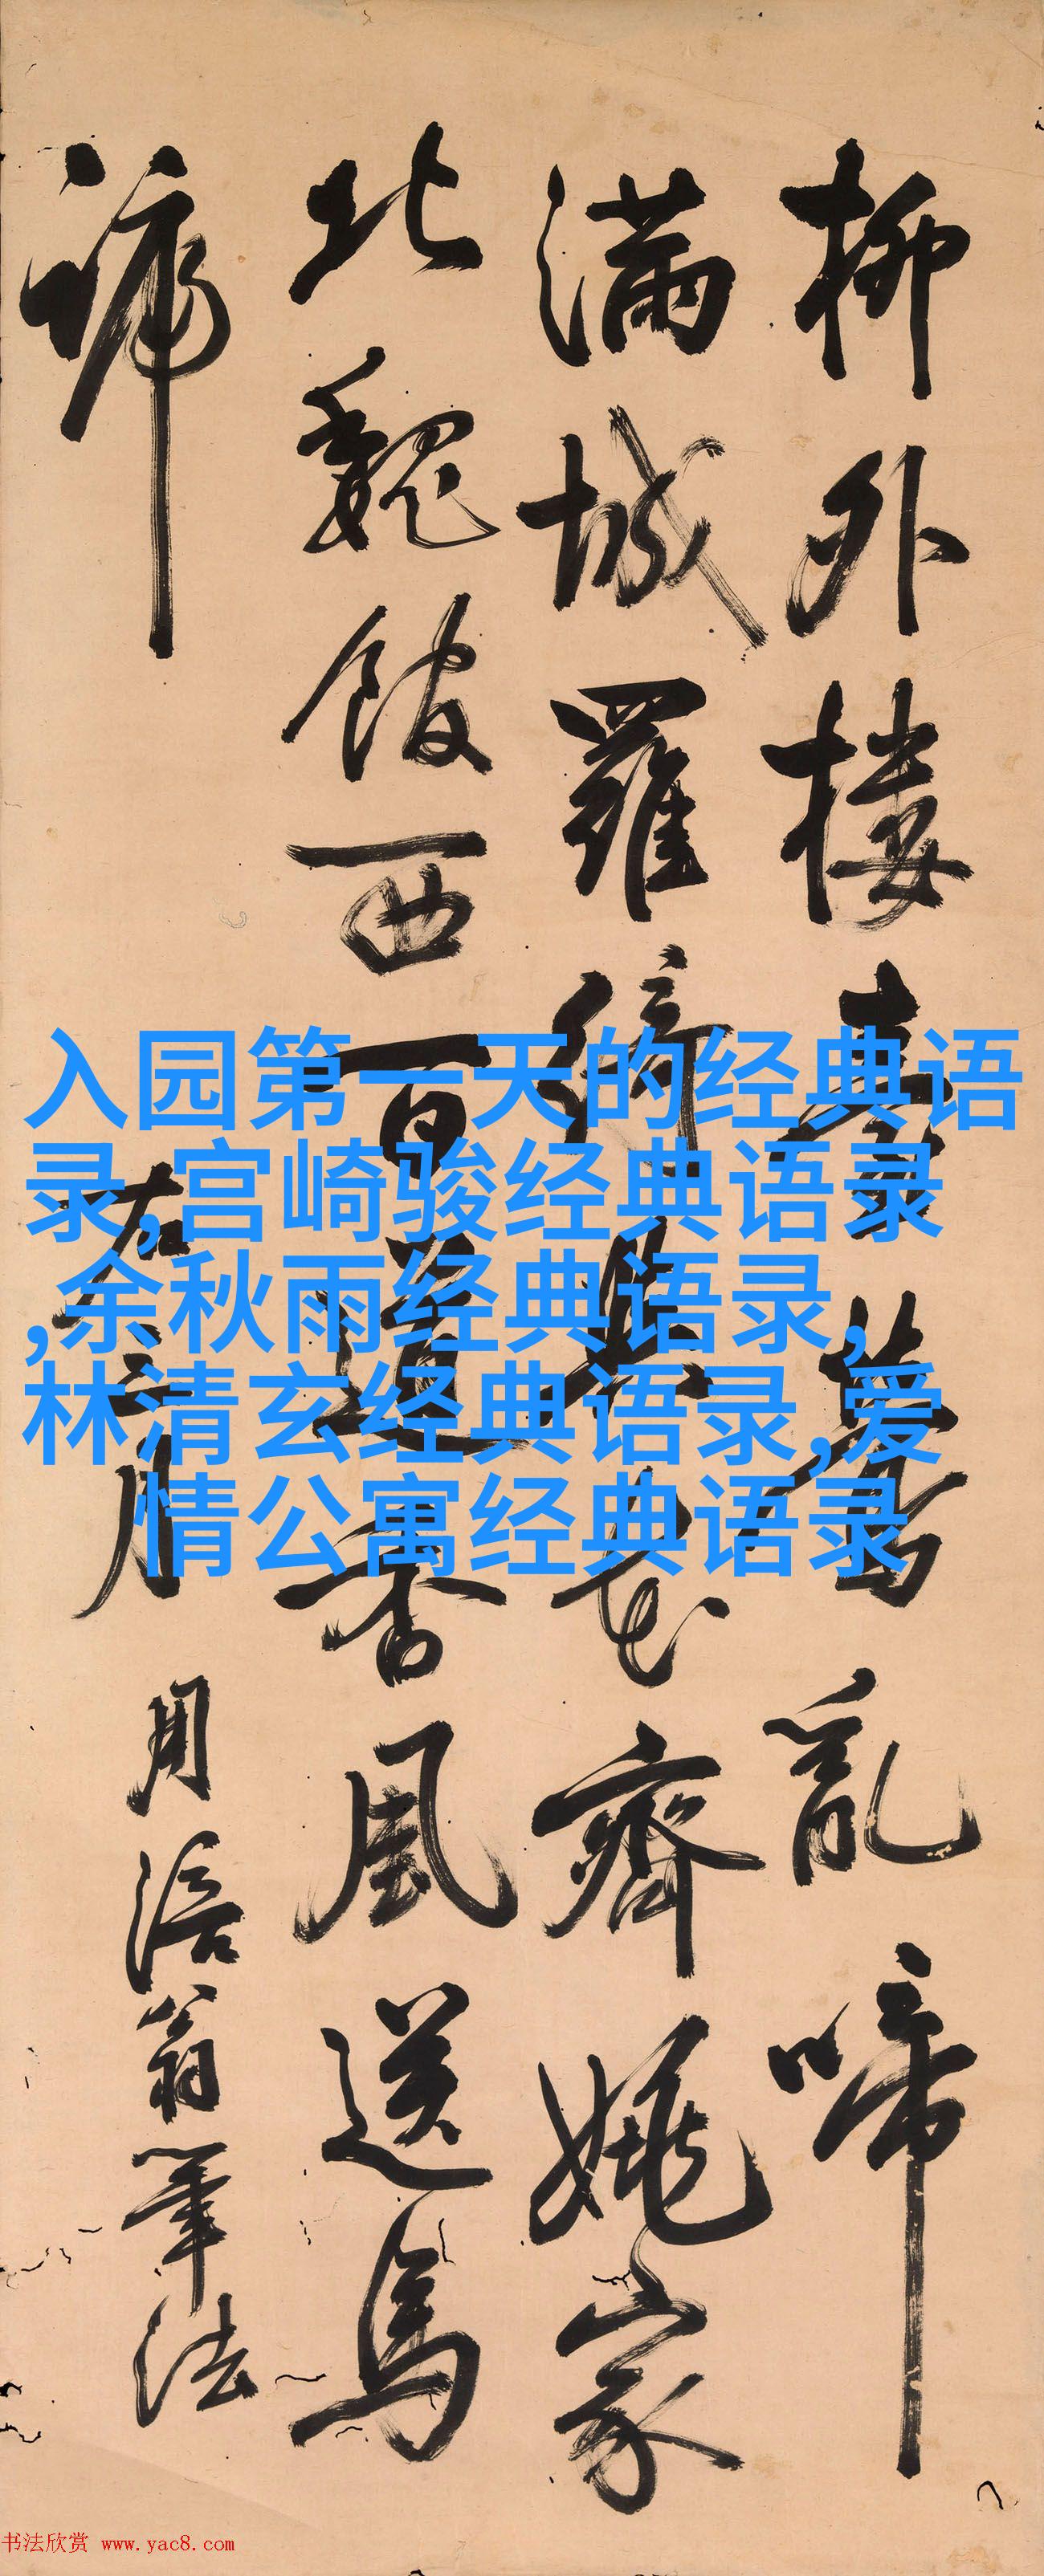 柳外樓臺鶯亂啼
滿城羅綺與花齊姚家
北魏西百道香風送馬
蹄
右三月
用涪翁筆法
入园第一天的经典语
录,宫崎骏经典语录
,余秋雨经典语录,
林清玄经典语录,爱
情公寓经典语录
书法欣赏 www.yac8.com